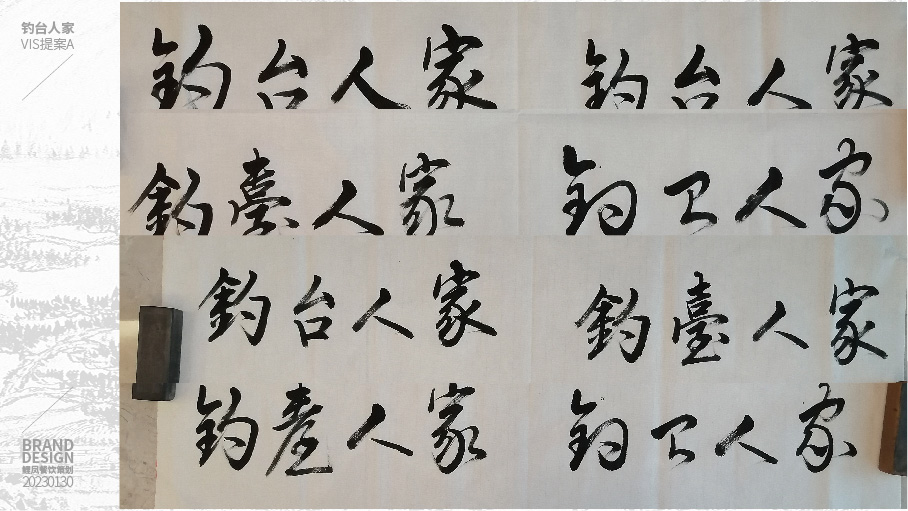 钓台人家
VIS提案A
釣台人家
釣台人家
釣臺人家
釣台人家
釣台人家
釣臺人家
釣臺人家
釣台人家
BRAND
DESIGN
鲤凤餐饮策划
20230130